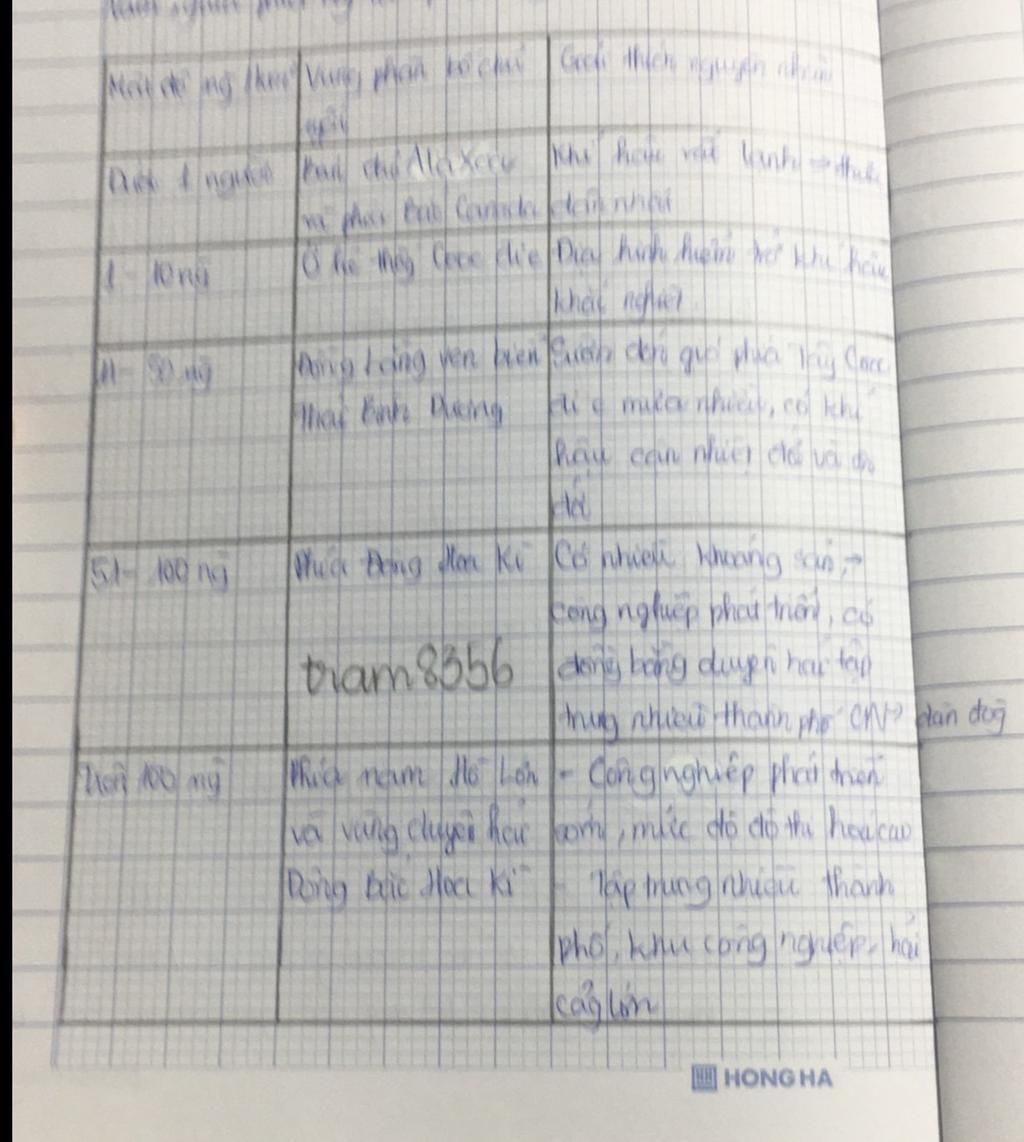 Vùng phân bố chủ
Giải thích nguyên nhân
Dưới 1 người
Bán đảo Alaxcơ
và phía Bắc Canada
Khí hậu rất lạnh → thưa
dân nhất
1 - 10 ng
Ở hệ thống Cooc đi e
Địa hình hiểm trở khí hậu
khắc nghiệt
11 - 50 ng
Đồng bằng ven biển
Thái Bình Dương
Sườn đón gió phía Tây Cooc
đi e mưa nhiều, có khí
hậu cận nhiệt đới và ôn
đới
51 - 100 ng
Phía Đông Hoa Kì
tram8356
Có nhiều khoáng sản, →
công nghiệp phát triển, có
đồng bằng duyên hải tập
trung nhiều thành phố CN → dân đog
trên 100 ng
Phía nam Hồ Lớn
và vùng duyên hải
Đông Bắc Hoa Kì
- Công nghiệp phát triển
sớm, mức độ đô thị hoá cao
- Tập trung nhiều thành
phố, khu công nghiệp, hải
cảg lớn
HONG HA